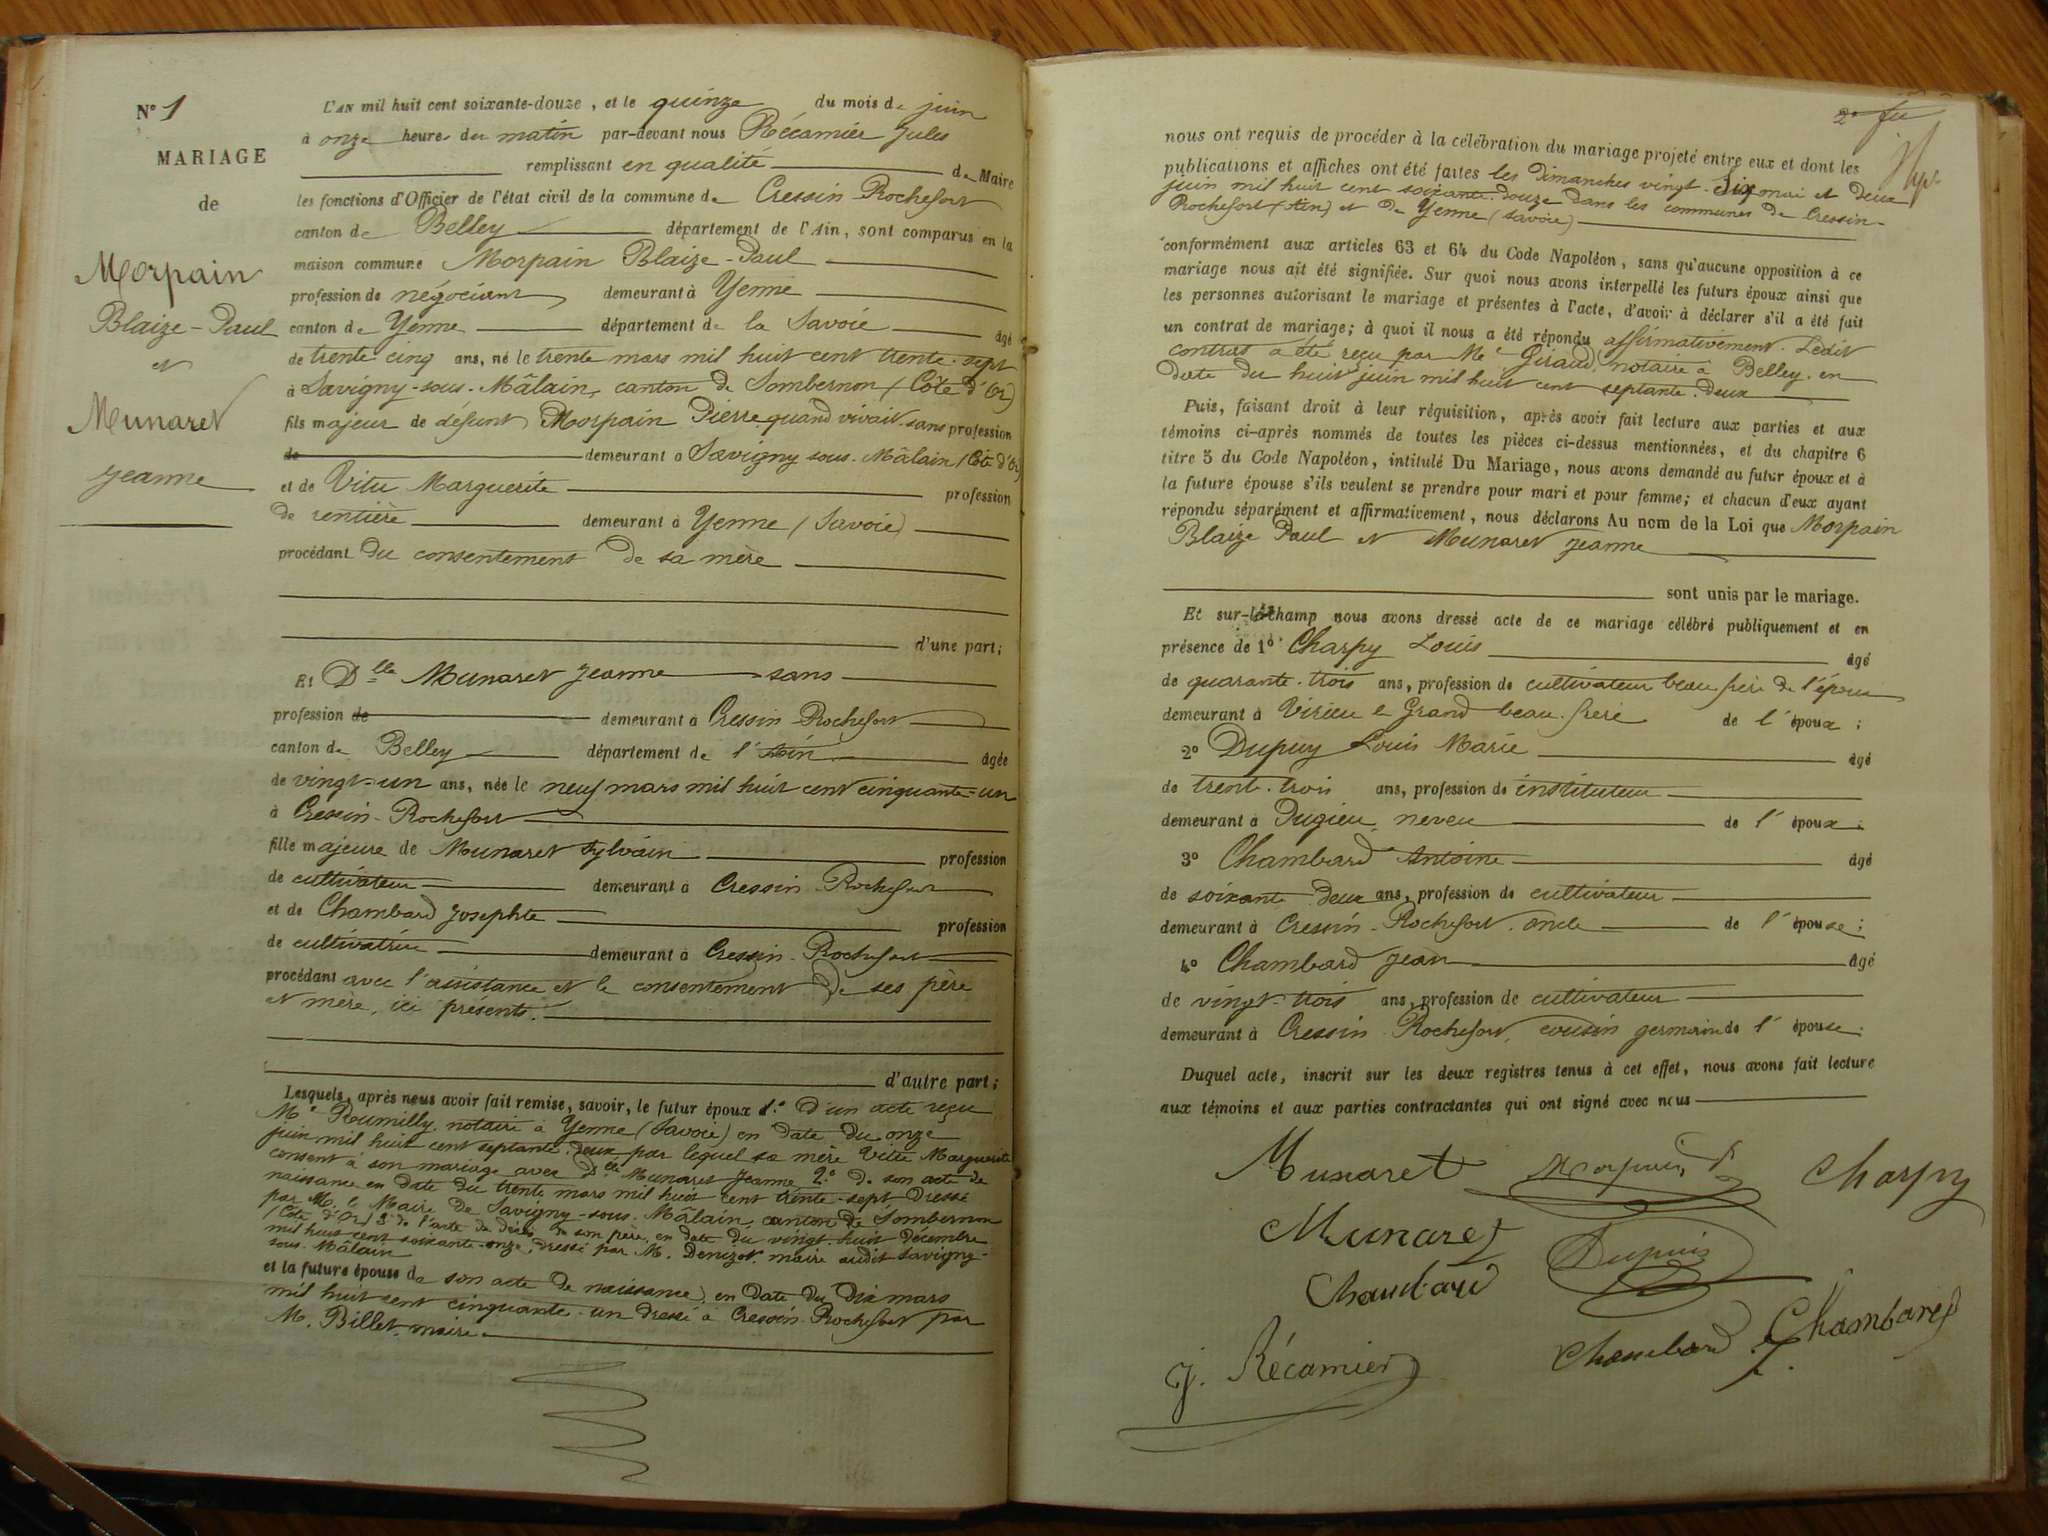 N° 1
MARIAGE
de
Morpain
Blaize-Paul
et
Munaret
Jeanne
L'AN mil huit cent soixante-douze, et le quinze du mois de juin
à onze heure du matin par-devant nous Récamier Jules
remplissant en qualité de Maire
les fonctions d'Officier de l'état civil de la commune de Cressin-Rochefort
canton de Belley département de l'Ain, sont comparus en la
maison commune Morpain Blaize-Paul
profession de négociant demeurant à Yenne
canton de Yenne département de la Savoie âgé
de trente cinq ans, né le trente mars mil huit cent trente-sept
à Savigny-sous-Mâlain, canton de Sombernon (Côte d'Or)
fils majeur de défunt Morpain Pierre quand vivait sans profession
de demeurant à Savigny sous-Mâlain (Côte d'Or)
et de Vitu Marguerite profession
de rentière demeurant à Yenne (Savoie)
procédant du consentement de sa mère
d'une part;
Et Dlle Munaret Jeanne sans
profession de demeurant à Cressin-Rochefort
canton de Belley département de l'Ain âgée
de vingt-un ans, née le neuf mars mil huit cent cinquante-un
à Cressin-Rochefort
fille majeure de Munaret Sylvain profession
de cultivateur demeurant à Cressin-Rochefort
et de Chambard Josephte profession
de cultivatrice demeurant à Cressin-Rochefort
procédant avec l'assistance et le consentement de ses père
et mère, ici présents.
d'autre part;
Lesquels, après nous avoir fait remise, savoir, le futur époux 1.° d'un acte reçu
Me Rumilly, notaire à Yenne (Savoie) en date du onze
juin mil huit cent septante-deux par lequel sa mère Vitu Marguerite
consent à son mariage avec Dlle Munaret Jeanne 2.° de son acte de
naissance en date du trente mars mil huit cent trente-sept dressé
par M. le Maire de Savigny-sous-Mâlain, canton de Sombernon
(Côte d'Or) 3° de l'acte de décès de son père, en date du vingt-huit décembre
mil huit cent soixante-onze, dressé par M. Denizot, maire audit Savigny-
sous-Mâlain
et la future épouse de son acte de naissance, en date du dix mars
mil huit cent cinquante-un dressé à Cressin-Rochefort par
M. Billet, maire
nous ont requis de procéder à la célébration du mariage projeté entre eux et dont les
publications et affiches ont été faites les Dimanches vingt-six mai et deux
juin mil huit cent soixante-douze dans les communes de Cressin-
Rochefort (Ain) et de Yenne (Savoie)
conformément aux articles 63 et 64 du Code Napoléon, sans qu'aucune opposition à ce
mariage nous ait été signifiée. Sur quoi nous avons interpellé les futurs époux ainsi que
les personnes autorisant le mariage et présentes à l'acte, d'avoir à déclarer s'il a été fait
un contrat de mariage; à quoi il nous a été répondu affirmativement. Ledit
contrat a été reçu par Me Giraud, notaire à Belley, en
date du huit juin mil huit cent septante-deux
Puis, faisant droit à leur réquisition, après avoir fait lecture aux parties et aux
témoins ci-après nommés de toutes les pièces ci-dessus mentionnées, et du chapitre 6
titre 5 du Code Napoléon, intitulé Du Mariage, nous avons demandé au futur époux et à
la future épouse s'ils veulent se prendre pour mari et pour femme; et chacun d'eux ayant
répondu séparément et affirmativement, nous déclarons Au nom de la Loi que Morpain
Blaize Paul et Munaret Jeanne
sont unis par le mariage.
Et sur-le-champ nous avons dressé acte de ce mariage célébré publiquement et en
présence de 1° Charpy Louis âgé
de quarante-trois ans, profession de cultivateur beau frère de l'époux
demeurant à Virieu le Grand beau-frère de l'époux;
2° Dupuy Louis Marie âgé
de trente-trois ans, profession de instituteur
demeurant à Pugieu, neveu de l'époux;
3° Chambard Antoine âgé
de soixante-deux ans, profession de cultivateur
demeurant à Cressin-Rochefort, oncle de l'épouse;
4° Chambard Jean âgé
de vingt-trois ans, profession de cultivateur
demeurant à Cressin-Rochefort, cousin germain de l'épouse.
Duquel acte, inscrit sur les deux registres tenus à cet effet, nous avons fait lecture
aux témoins et aux parties contractantes qui ont signé avec nous
Munaret Morpain Charpy
Munaret Dupuis
Chambard
Chambard J. Chambard
J. Récamier